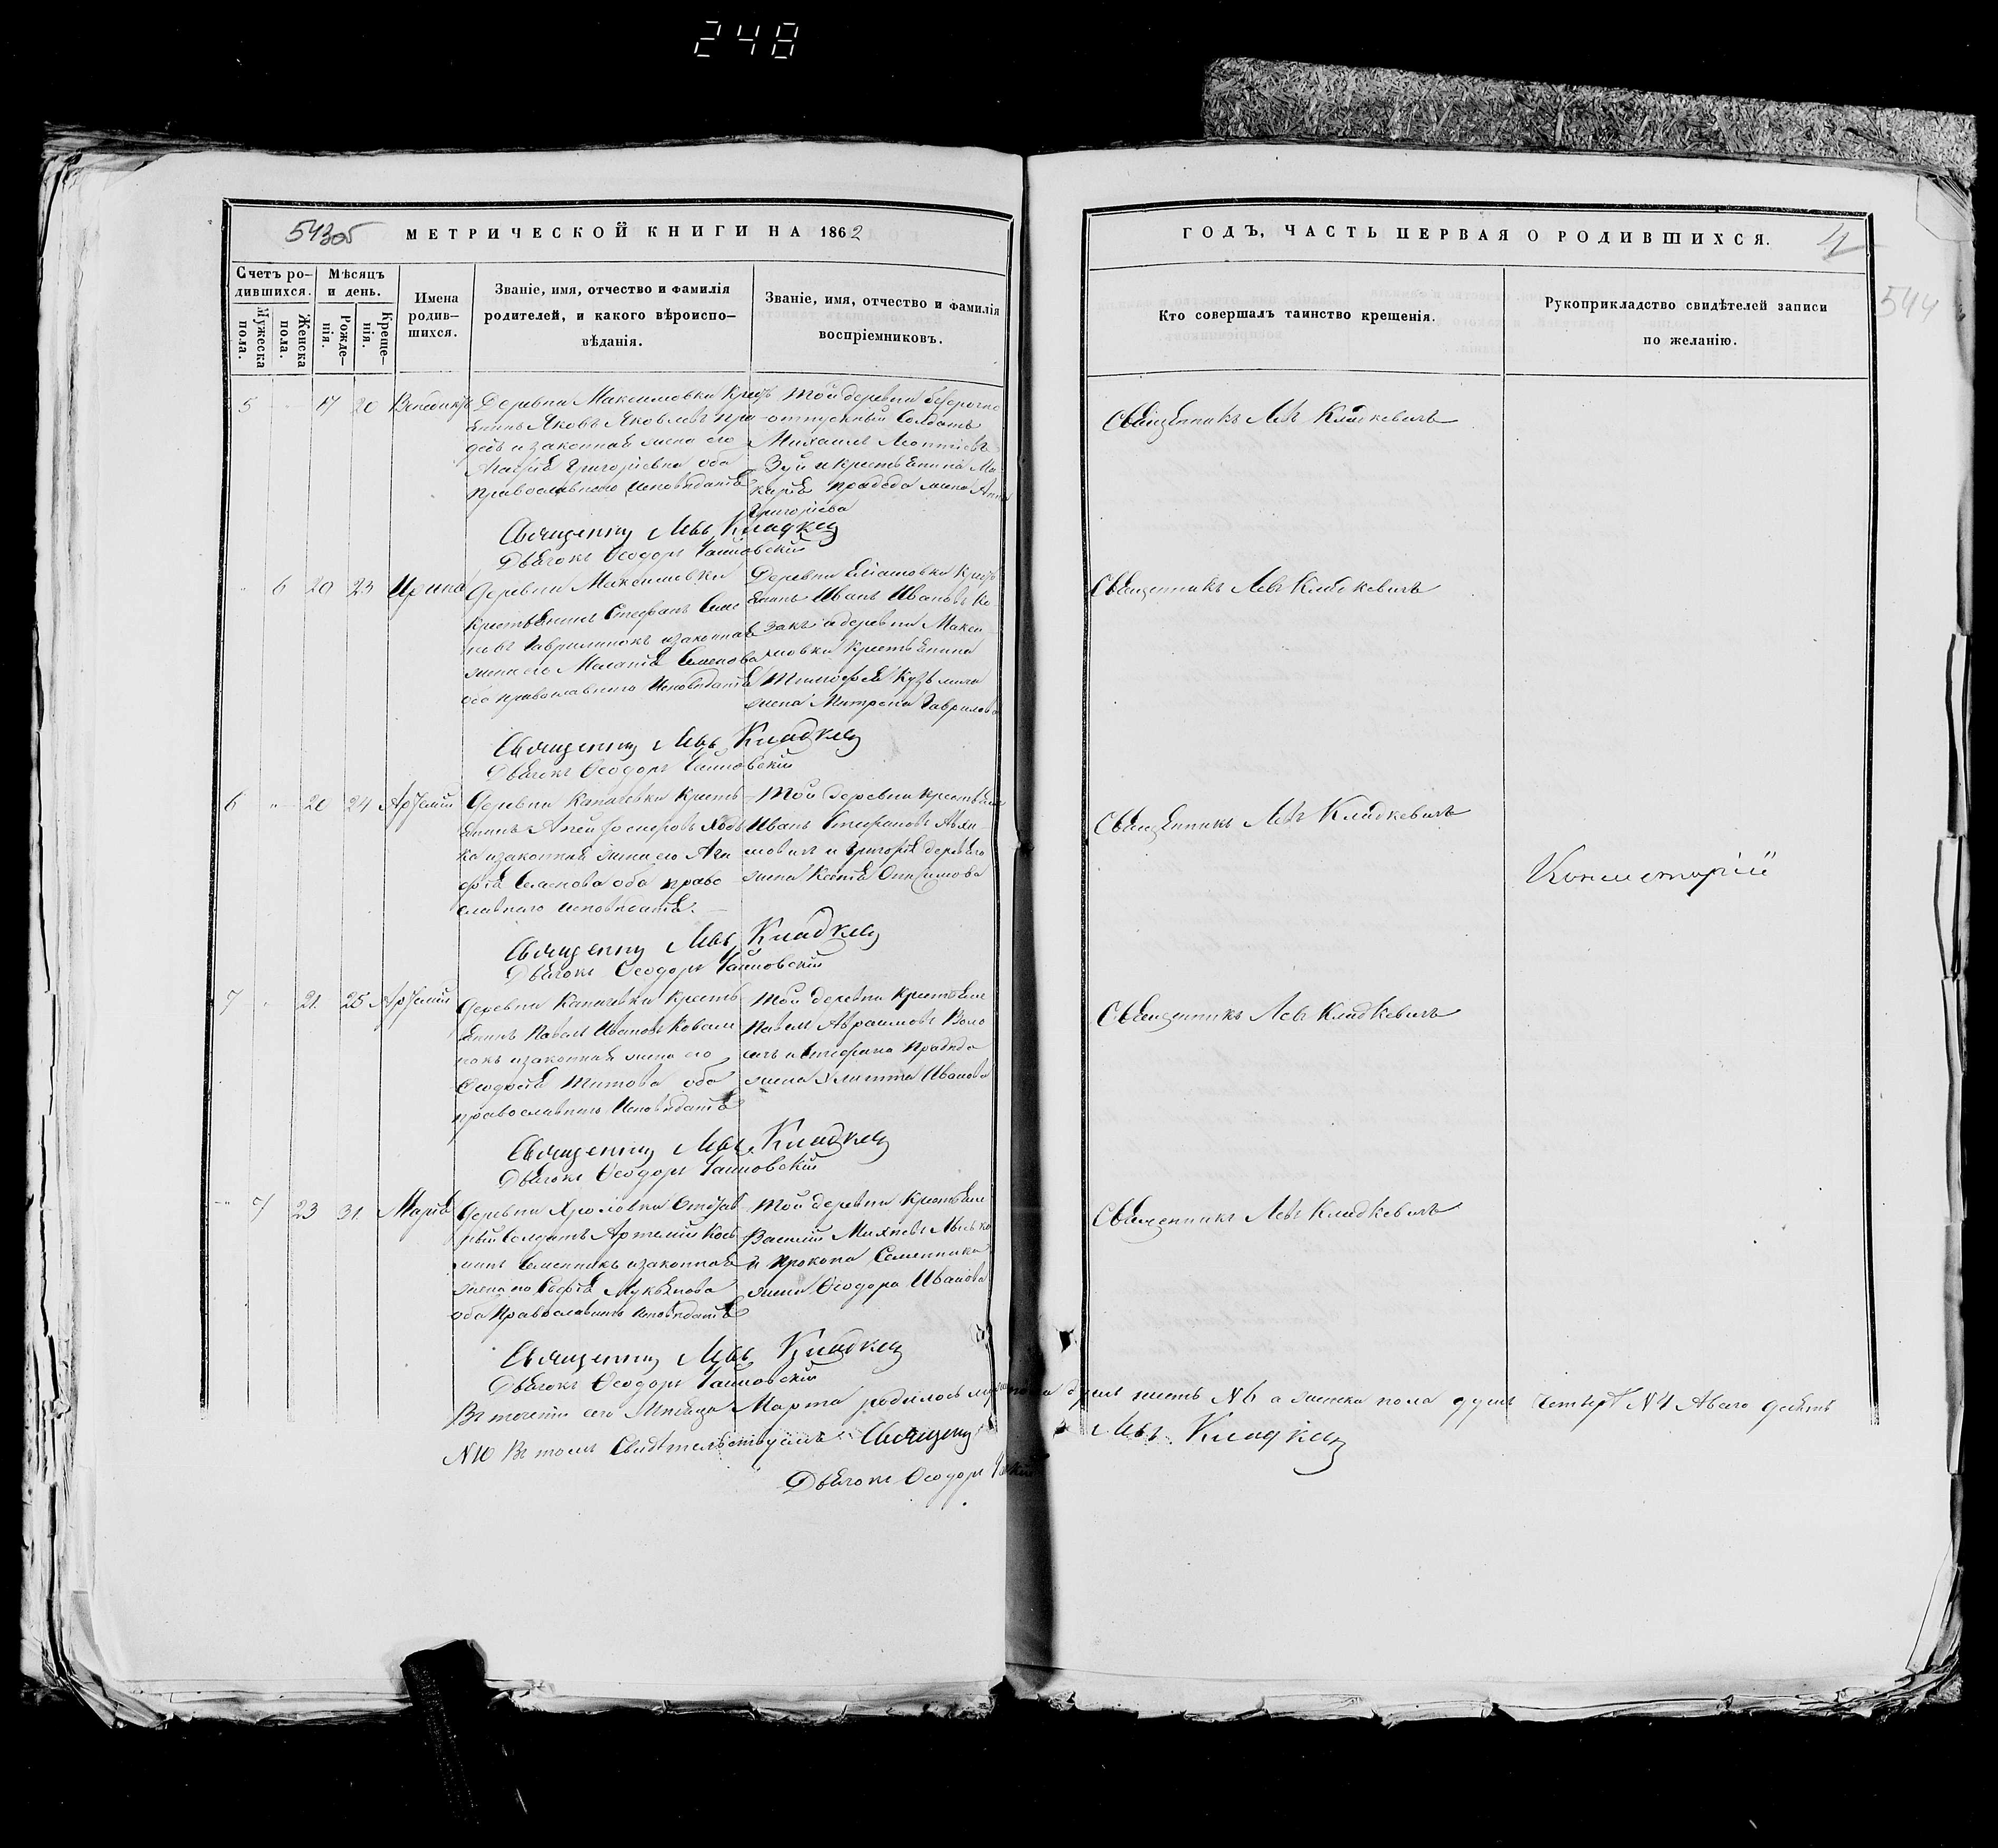 248
543об
МЕТРИЧЕСКОЙ КНИГИ НА 1862
Счетъ ро-
дившихся.
Мужеска
пола.
Женска
пола.
Мѣсяцъ
и день.
Рожде-
нія.
Креще-
нія.
Имена
родив-
шихся.
Званіе, имя, отчество и фамилія
родителей, и какого вѣроиспо-
вѣданія.
Званіе, имя, отчество и фамилія
воспріемниковъ.
5 17 20 Венедиктъ
Деревни Максимовки Крест
янинъ Яковъ Яковлевъ Пра
дедъ и законная жена его
Григоріевна оба
православнаго исповѣданія
Той деревни безсрочно
отпускный Солдатъ
Михаилъ Леонтіевъ
Зуй и крестьянина Ма
карія Прадеда жена Анна
Григоріева
Священну Левъ Кладкев
Дьячокъ Ѳеодоръ
6 20 23 Ирина
Деревни Максимовки
Крестьянинъ Стефанъ Симе
новъ Гаврилюкъ изаконная
жена его Меланія Семенова
оба православнаго исповѣданія
Деревни Крест
янинъ Иванъ Ивановъ Ко
закъ и деревни Макси
мовки крестьянина
Тимофея Кузьмича
жена Матрона Гаврилова
Священну Левъ Кладкев
Дьячокъ Ѳеодоръ
6 " 20 24 Артемій
Деревни Крестъ
янинъ
ка изаконная жена его Ага
фія Семенова оба право
славнаго исповѣданія.
Той деревни крестьяне
Иванъ Стефановъ
и Григорія
жена Ксенія Онисимова
Священну Левъ Кладкев
Дьячокъ Ѳеодоръ
7 " 21 25 Артемій
Деревни Крестъ
янинъ Павелъ Ивановъ Ковалю
окъ изаконная жена его
Ѳеодосія Титова оба
православнаго исповѣданія
Той деревни крестьяне
Павелъ Авраамовъ Воло
и Стефана Прадеда
жена Иванова
Священну Левъ Кладкев
Дьячокъ Ѳеодоръ
7 23 31 Марія
Деревни Отстав
ный Солдатъ Артемій Кось
Семенюкъ изаконная
жена его Софія Лукьянова
оба Православнаго исповѣданія
Той деревни Крестьяне
Василій
и Прокопа Семенюка
жена Ѳеодора Иванова
Священну Левъ Кладкев
Дьячокъ Ѳеодоръ
Въ теченіи сего Мѣсяца Марта родилось душъ шесть N6 а женска пола душъ четыре N4 Авсего десять
N10 Въ томъ Свидѣтельствуемъ Священну Левъ Кладкев
Дьячокъ Ѳеодоръ
ГОДЪ, ЧАСТЬ ПЕРВАЯ О РОДИВШИХСЯ.
4
544
Кто совершалъ таинство крещенія.
Рукоприкладство свидѣтелей записи
по желанію.
Священникъ Левъ Кладкевичъ
Священникъ Левъ Кладкевичъ
Священникъ Левъ Кладкевичъ
Консисторіи
Священникъ Левъ Кладкевичъ
Священникъ Левъ Кладкевичъ